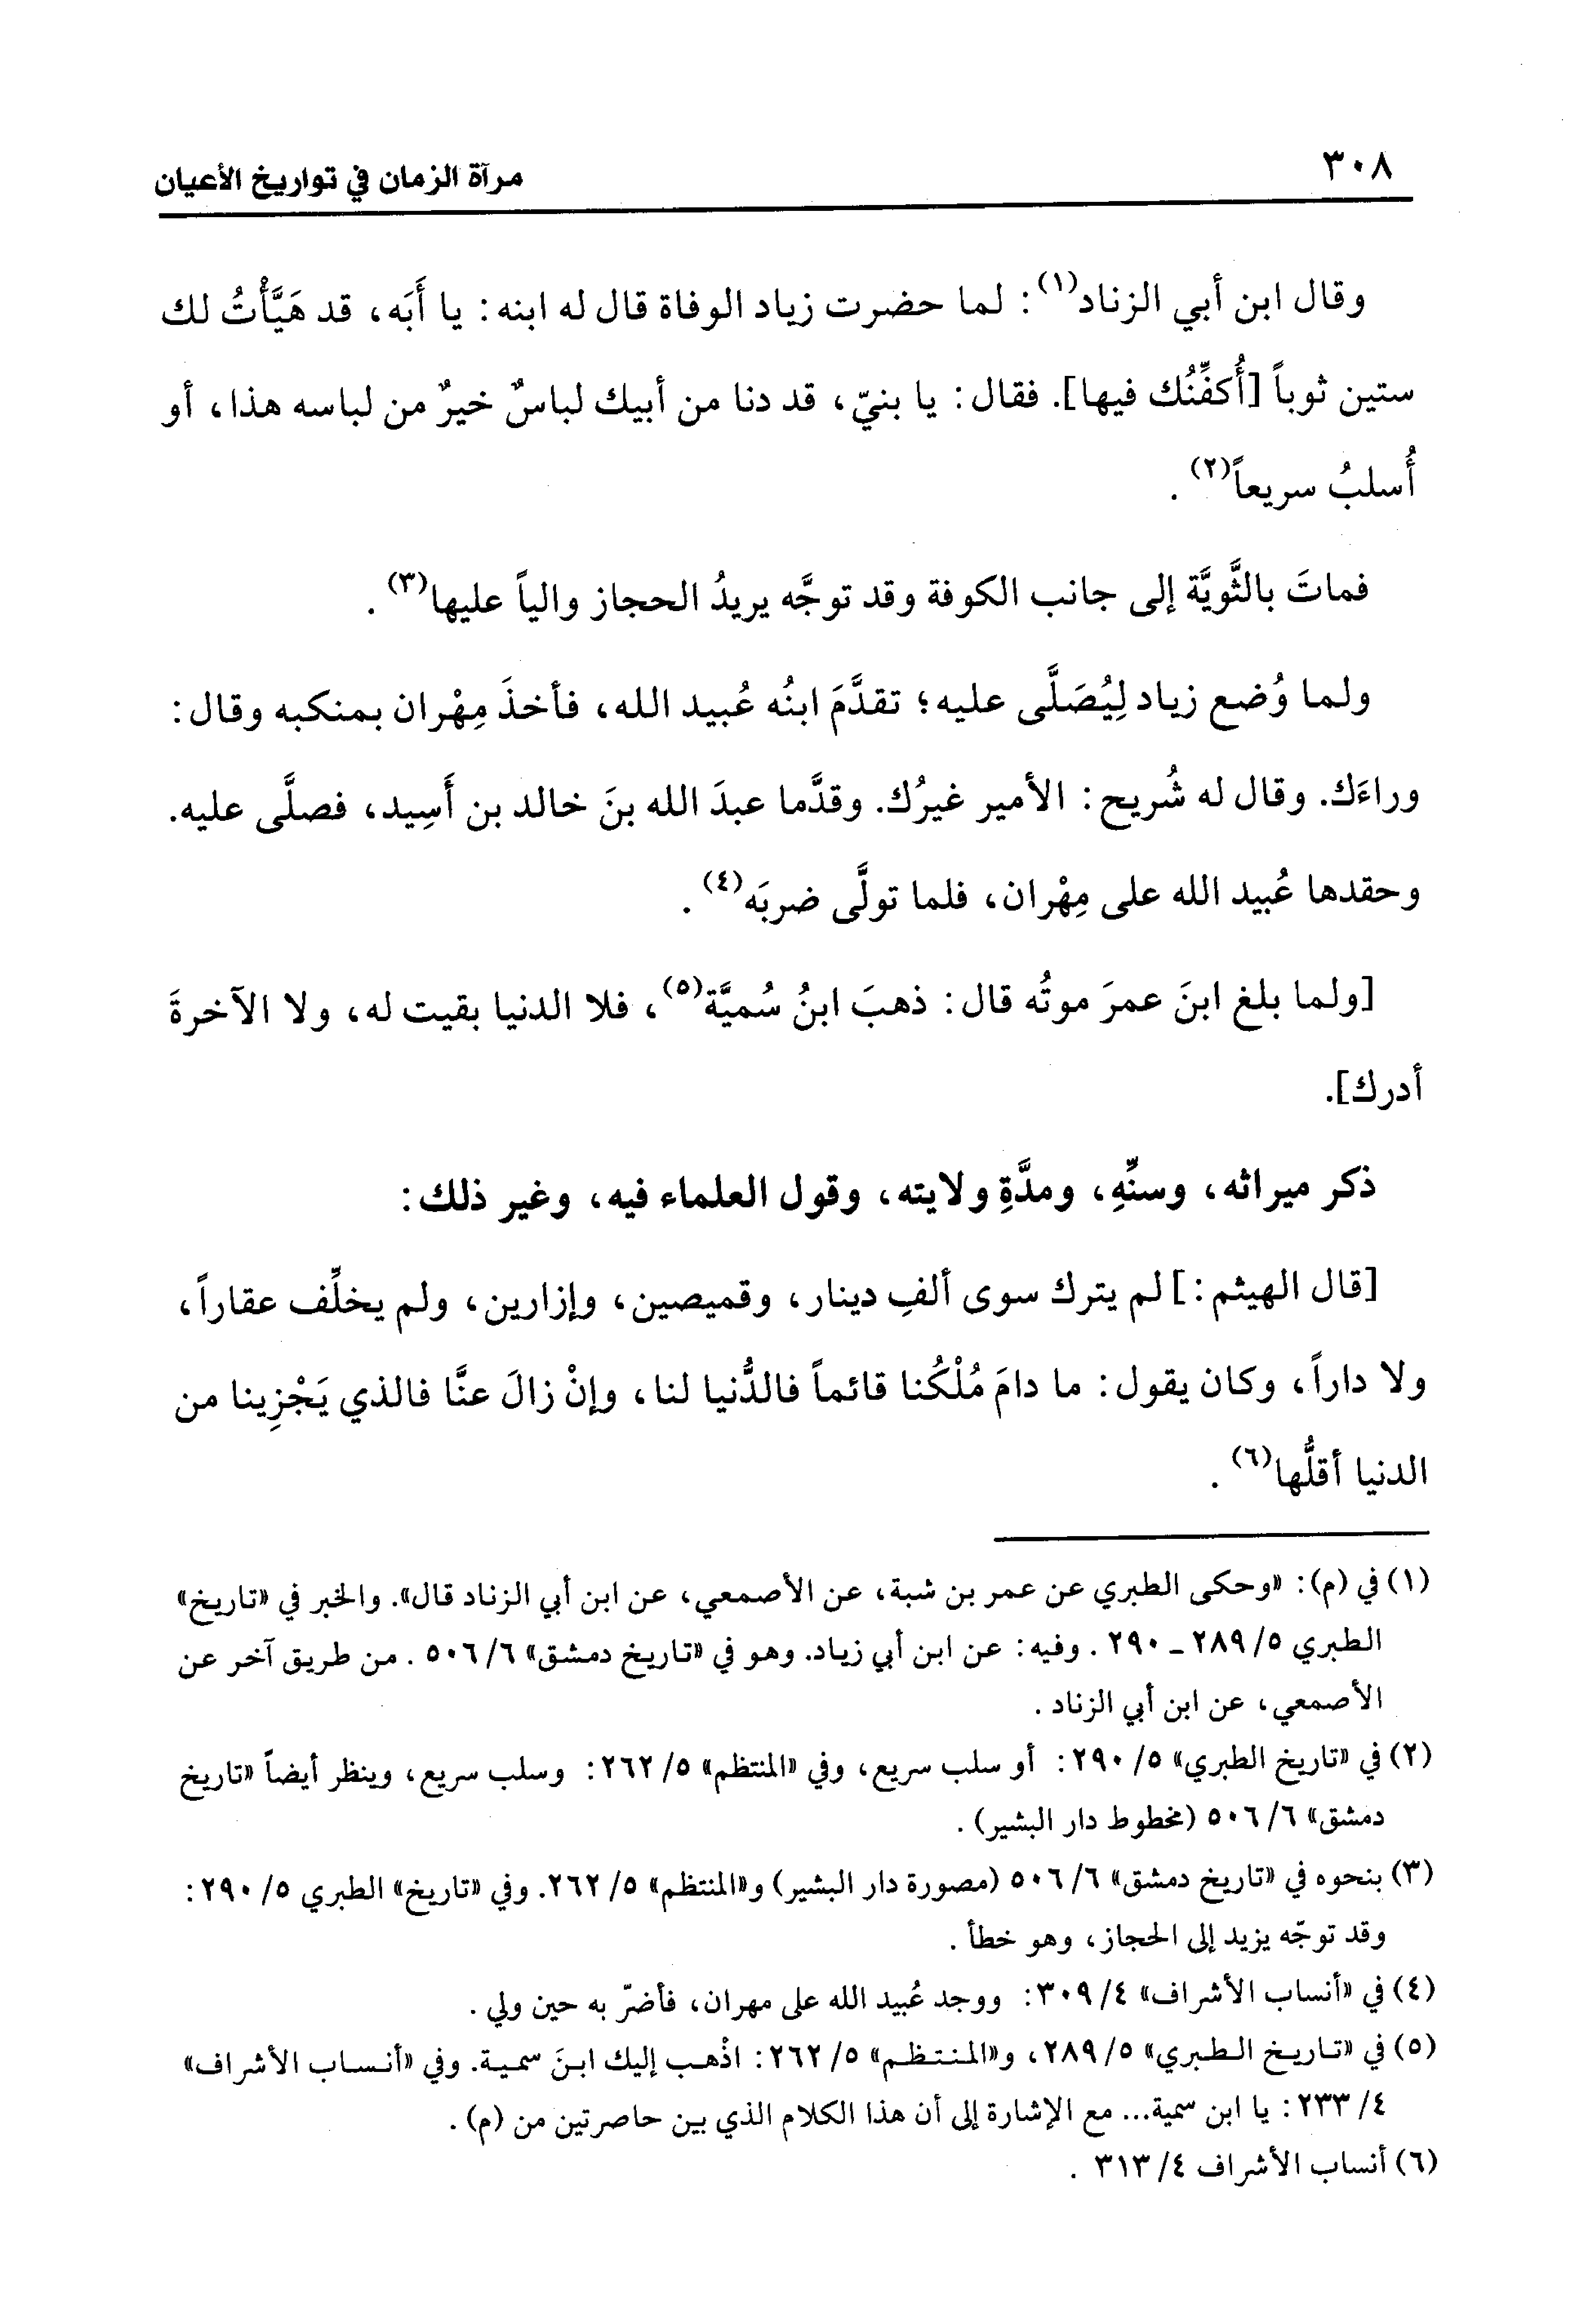 ٣٠٨
مرآة الزمان في تواريخ الأعيان
وقال ابن أبي الزناد(١): لما حضرت زياد الوفاة قال له ابنه: يا أَبَه، قد هَيَّأْتُ لك
ستين ثوباً [أُكفِّنُك فيها]. فقال: يا بنيّ، قد دنا من أبيك لباسٌ خيرٌ من لباسه هذا، أو
أُسلبُ سريعاً(٢).
فماتَ بالثَّويَّة إلى جانب الكوفة وقد توجَّه يريدُ الحجاز والياً عليها(٣).
ولما وُضع زياد لِيُصَلَّى عليه؛ تقدَّمَ ابنُه عُبيد الله، فأخذَ مِهْران بمنكبه وقال:
وراءَك. وقال له شُريح: الأمير غيرُك. وقدَّما عبدَ الله بنَ خالد بن أَسِيد، فصلَّى عليه.
وحقدها عُبيد الله على مِهْران، فلما تولَّى ضربَه(٤).
[ولما بلغ ابنَ عمرَ موتُه قال: ذهبَ ابنُ سُميَّة(٥)، فلا الدنيا بقيت له، ولا الآخرةَ
أدرك].
ذكر ميراثه، وسنِّهِ، ومدَّةِ ولايته، وقول العلماء فيه، وغير ذلك:
[قال الهيثم:] لم يترك سوى ألفِ دينار، وقميصين، وإزارين، ولم يخلِّف عقاراً،
ولا داراً، وكان يقول: ما دامَ مُلْكُنا قائماً فالدُّنيا لنا، وإنْ زالَ عنَّا فالذي يَجْزِينا من
الدنيا أقلُّها(٦).
(١) في (م): «وحكى الطبري عن عمر بن شبة، عن الأصمعي، عن ابن أبي الزناد قال». والخبر في «تاريخ»
الطبري ٥/ ٢٨٩ ـ ٢٩٠. وفيه: عن ابن أبي زياد. وهو في «تاريخ دمشق» ٦/ ٥٠٦. من طريق آخر عن
الأصمعي، عن ابن أبي الزناد.
(٢) في «تاريخ الطبري» ٥/ ٢٩٠: أو سلب سريع، وفي «المنتظم» ٥/ ٢٦٢: وسلب سريع، وينظر أيضاً «تاريخ
دمشق» ٦/ ٥٠٦ (مخطوط دار البشير).
(٣) بنحوه في «تاريخ دمشق» ٦/ ٥٠٦ (مصورة دار البشير) و«المنتظم» ٥/ ٢٦٢. وفي «تاريخ» الطبري ٥/ ٢٩٠:
وقد توجّه يزيد إلى الحجاز، وهو خطأ.
(٤) في «أنساب الأشراف» ٤/ ٣٠٩: ووجد عُبيد الله على مهران، فأضرّ به حين ولي.
(٥) في «تاريخ الطبري» ٥/ ٢٨٩، و«المنتظم» ٥/ ٢٦٢: اذْهب إليك ابنَ سمية. وفي «أنساب الأشراف»
٤/ ٢٣٣: يا ابن سمية... مع الإشارة إلى أن هذا الكلام الذي بين حاصرتين من (م).
(٦) أنساب الأشراف ٤/ ٣١٣.